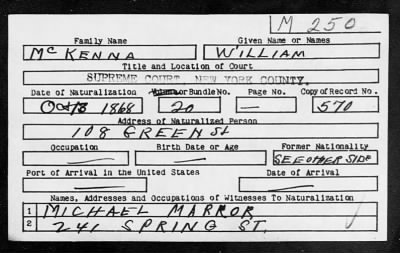 M 250
Family Name Given Name or Names
McKENNA WILLIAM
Title and Location of Court
SUPREME COURT, NEW YORK COUNTY.
Date of Naturalization Volume or Bundle No. Page No. Copy of Record No.
Oct 13 1868 20 — 570
Address of Naturalized Person
108 GREEN St
Occupation Birth Date or Age Former Nationality
— — SEE OTHER SIDE
Port of Arrival in the United States Date of Arrival
— —
Names, Addresses and Occupations of Witnesses To Naturalization
1 MICHAEL MARROR
2 241 SPRING ST.